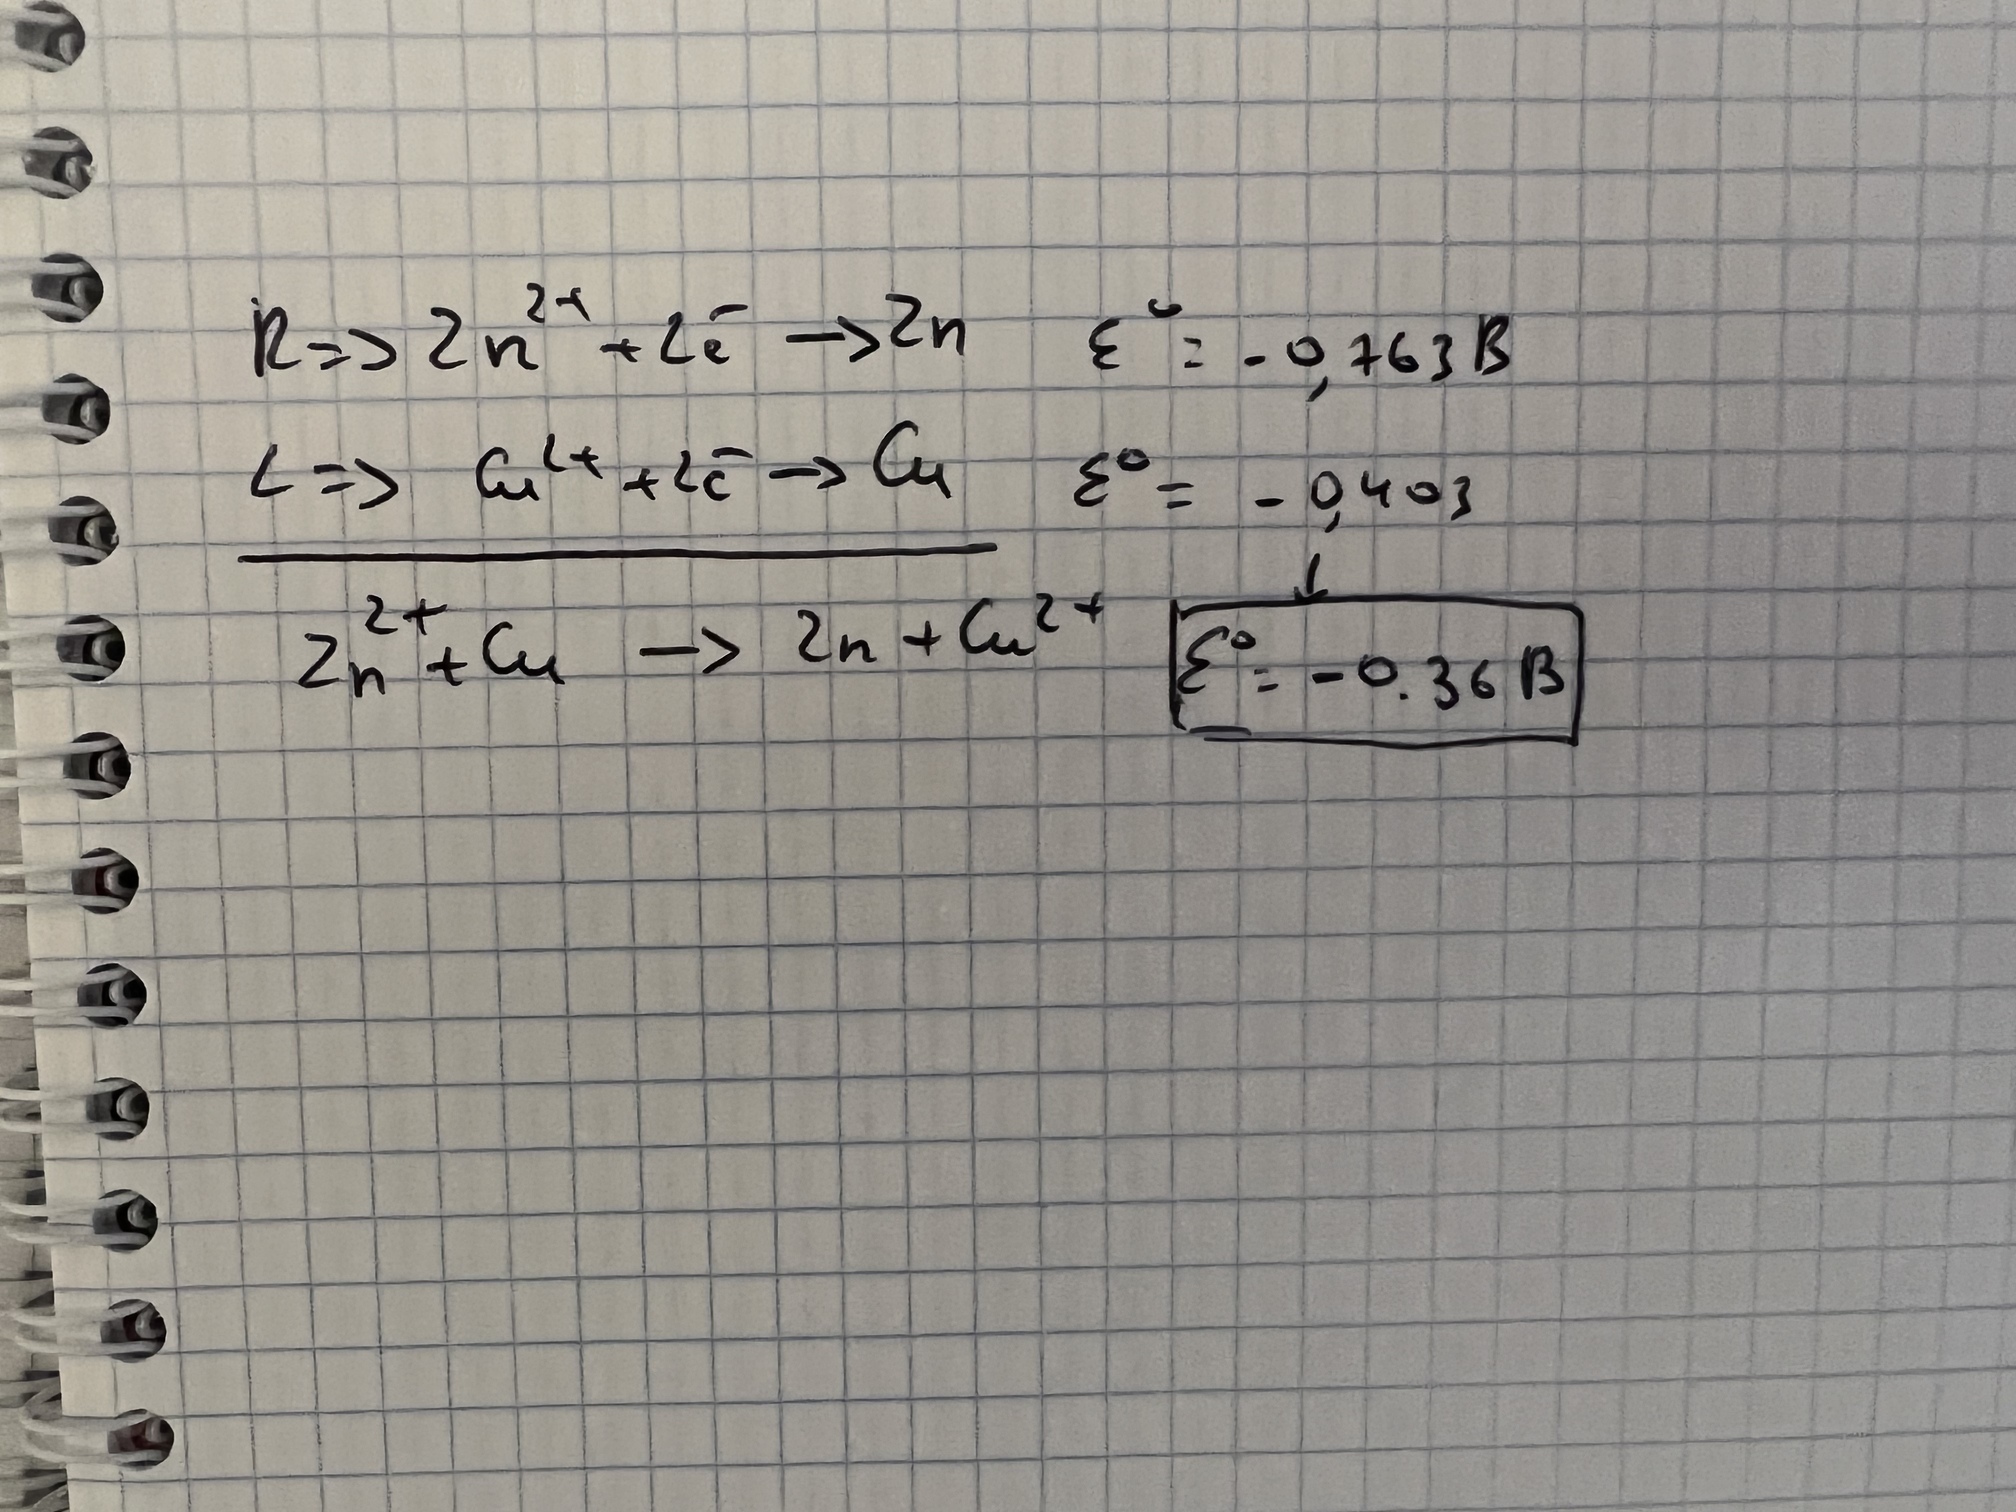 R => Zn²⁺ + 2e⁻ → Zn   ε⁰ = -0,763 В
L => Cu²⁺ + 2e⁻ → Cu   ε⁰ = -0,403
↓
Zn²⁺ + Cu → Zn + Cu²⁺   ε⁰ = -0.36 В